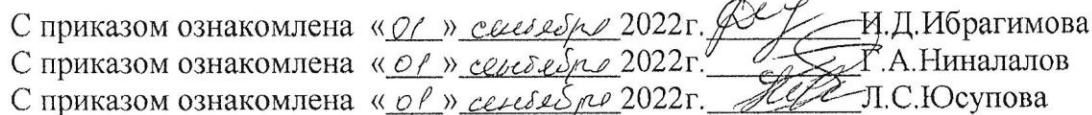 С приказом ознакомлена «01» сентября 2022г. И.Д.Ибрагимова
С приказом ознакомлена «01» сентября 2022г. Г.А.Ниналалов
С приказом ознакомлена «01» сентября 2022г. Л.С.Юсупова